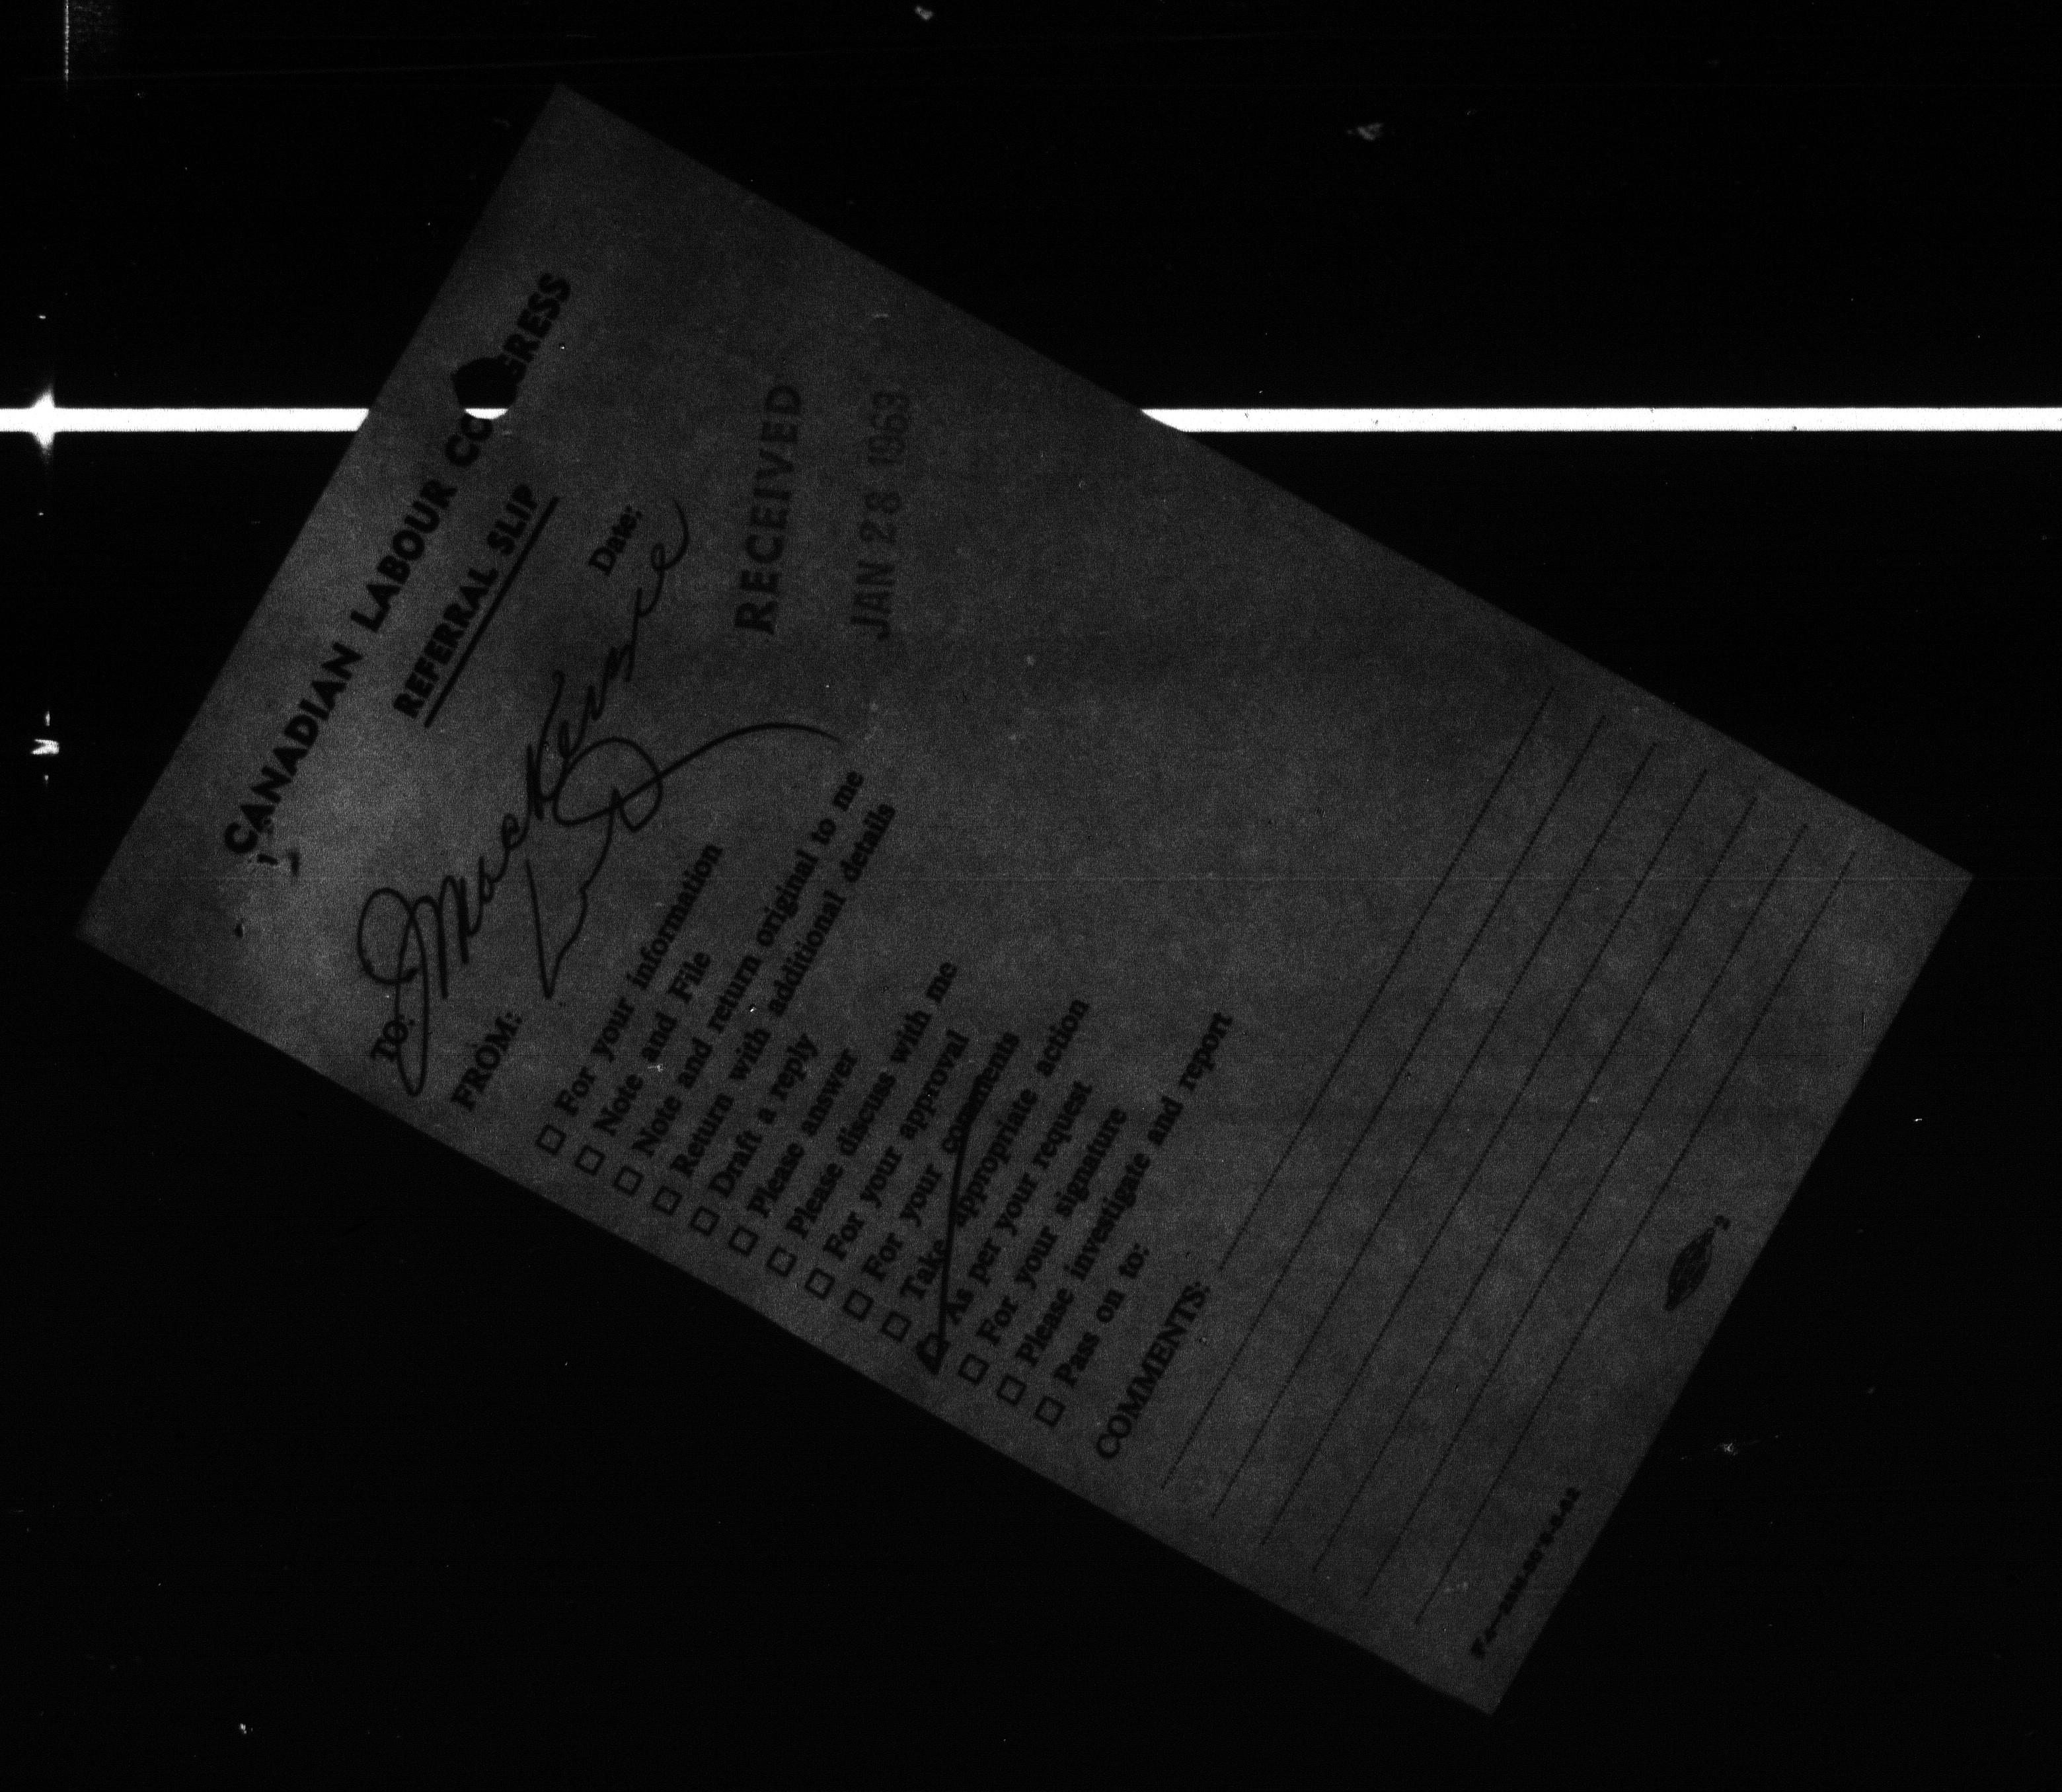 CANADIAN LABOUR CO GRESS
REFERRAL SLIP
Date:
TO: J MacKenzie
FROM:
RECEIVED
JAN 28 1963
☐ For your information
☐ Note and File
☐ Note and return original to me
☐ Return with additional details
☐ Draft a reply
☐ Please answer
☐ Please discuss with me
☐ For your approval
☐ For your comments
☐ Take appropriate action
☑ As per your request
☐ For your signature
☐ Please investigate and report
☐ Pass on to:
COMMENTS: